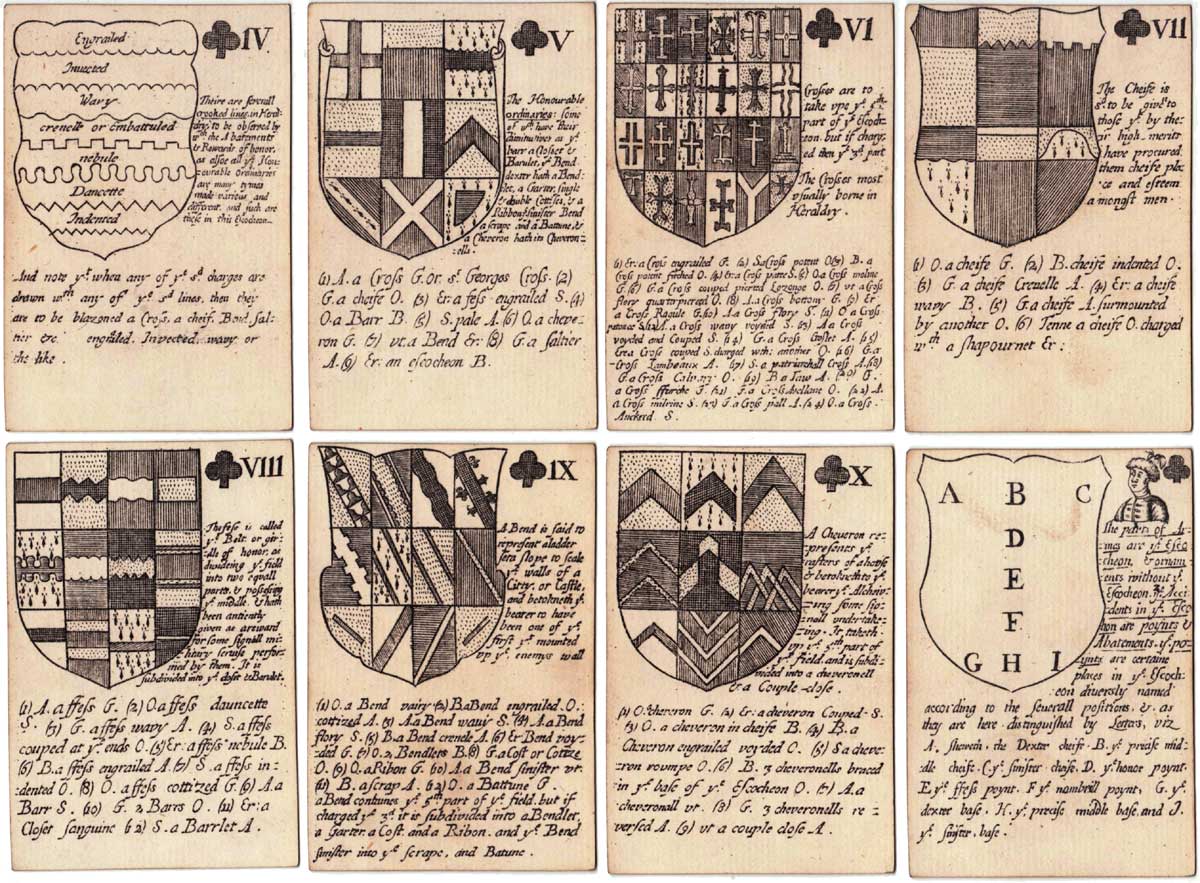 IV
Engrailed
Invected
Wavy
crenelle or Embattuled
nebule
Dancette
Indented
Theire are severall
crooked lines in Heral
dry to be observed by
wth the Abatements
& Rewards of honor,
as allsoe all ye Hon
ourable Ordinaries
are many tymes
made various and
different, and such are
these in this Escocheon.
And note yt when any of ye sd charges are
drawn wth any of ye sd lines, then they
are to be blazoned a Cross, a cheif, Bend, Sal
tier &c engraled, Invected, wavy or
the like.
V
The Honourable
ordinaries: some
of wch have their
diminutives as ye
barr a closset &
Barulet, ye Bend
dexter hath a Bend
let, a Garter, single
& duble Cottises, & a
Ribbon, sinister Bend
a scrape and a Battune, &
a Cheveron hath its Cheveron
ells.
(1) A. a Cross G. or st. Georges Cross. (2)
G. a cheife O. (3) Er: a fess engrailed S. (4)
O. a Barr B. (5) S. pale A. (6) O. a cheve
ron G. (7) vt. a Bend Er: (8) G. a saltier
A. (9) Er: an escocheon B.
VI
Crosses are to
take vpe ye 5th
part of ye Escoch
eon, but if charg
ed then ye 3d part
The Crosses most
vsually borne in
Heraldry.
(1) Er: a Cross engrailed G. (2) Sa Cross potent O (3) B. a
Cross potent fitched O. (4) Er: a Cross patte S. (5) O. a Cross moline
G. (6) G. a Cross couped pierced Lozonge O. (7) vt a Cross
flory quarter pierced O. (8) A. a Cross bottony G. (9) Er
a Cross Ragule G. (10) A. a Cross flory S. (11) O a Cross
patonce S. (12) A. a Cross wavy voyded S. (13) A a Cross
voyded and Couped S. (14) G. a Cross Croslet A. (15)
G. a Cross couped S. charged wth another O. (16) G. a
Cross Lambeaux A. (17) S. a patriarchall Cross A. (18)
G. a Cross Calvary O. (19) B. a Taw A. (20) G.
a Cross fforche G. (21) G. a Cross Avellane O. (22) A.
a Cross milrine S. (23) G. a Cross pall A. (24) O. a Cross
Anckered S.
VII
The Cheife is
sd. to be given to
those yt by the
ir high merits
have procured
them cheife pla
ce and esteem
amongst men.
(1) O. a cheife G. (2) B. cheife indented O.
(3) G. a cheife Crenelle A. (4) Er: a cheife
wavy B. (5) G. a cheife A. surmounted
by another O. (6) Tenne a cheife O. charged
wth a shapournet Er:
VIII
The fess is called
ye Belt, or gir
dle of honor, as
dividing ye field
into two equall
parts, & possessing
ye middle, & hath
been anciently
given as a reward
for some signall mi
litary servise perfor
med by them. It is
subdivided into ye closet & Barulet.
(1) A. a ffess G. (2) O. a ffess dauncette
S. (3) G. a ffess wavy A. (4) S. a ffess
couped at ye ends O. (5) Er: a ffess nebule B.
(6) B. a ffess engrailed A. (7) S. a ffess in
dented O. (8) O. a ffess cottized G. (9) A. a
Barr S. (10) G. 2 Barrs O. (11) Er: a
Closet sanguine (12) S. a Barrlet A.
IX
A Bend is said to
represent a ladder
sett slope to scale
ye walls of a
Citty, or Castle,
and betokneth ye
bearer to have
been one of ye
first yt mounted
vp ye enemys wall
(1) O. a Bend vairy (2) B. a Bend engrailed. O.
cottized A. (3) A. a Bend wavy S. (4) A. a Bend
flory S. (5) B. a Bend crenele A. (6) Er Bend voy
ded G. (7) O. 2 Bendlets B. (8) G. a Cost or Cotize
O. (9) O. a Ribon G. (10) A. a Bend sinister vt.
(11) B. a scrap A. (12) O. a Battune G.
a Bend containes ye 5th part of ye field, but if
charged ye 3d. it is subdivided into a Bendlet,
a Garter, a Cost, and a Ribon, and ye Bend
sinister into ye scrape, and Batune.
X
A Cheveron re
presents ye
rafters of a house
& betokneth to ye
bearer ye Atcheiv
ing some sig
nall undertake
ing. It taketh
up ye 5th part of
ye field, and is subdi
vided into a cheveronell
& a Couple-close.
(1) O. cheveron G. (2) Er: a cheveron Couped S.
(3) O. a cheveron in cheife B. (4) B. a
Cheveron engrailed voyded O. (5) S a cheve
ron rompe O. (6) B. 3 cheveronells braced
in ye base of ye Escocheon O. (7) A. a
cheveronall vt. (8) G. 3 cheveronells re
versed A. (9) vt a couple close A.
A B C
D
E
F
G H I
The parts of Ar
mes are ye Esco
cheon, & ornam
ents without ye
Escocheon. The Acci
dents in ye Esco
cheon are poynts &
Abatements. ye po
ynts are certaine
places in ye Escoch
eon diversly named
according to the severall positions, & as
they are here distinguished by Letters, viz
A, sheweth the Dexter cheife. B. ye precise mid
dle cheife. C. ye sinister cheife. D. ye honor poynt.
E. ye ffess poynt. F. ye nombrill poynt, G. ye
dexter base. H. ye precise middle base, and I.
ye sinister base.